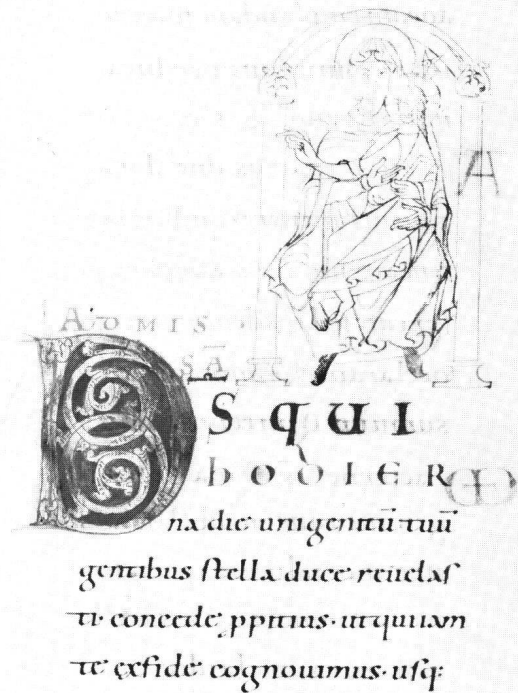 A
AD MIS
SĀ
DS QUI
hODIER
ω
na die unigenitū tuū
gentibus stella duce reuelas
ti· concede ppitius· ut qui iam
te ex fide cognouimus· usq: